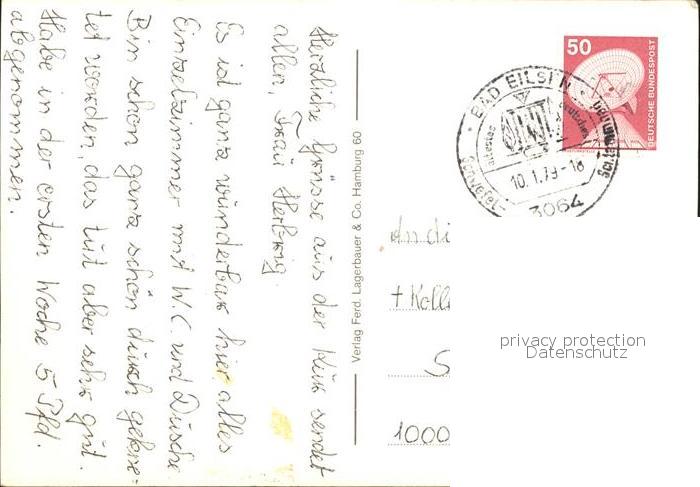 Herzliche Grüsse aus der Kur sendet
allen, Frau Herbrig.
Es ist ganz wunderbar hier, alles
Einzelzimmer mit W.C. und Dusche
Bin schon ganz schön durch gekne=
tet worden, das tut aber sehr gut.
Habe in der ersten Woche 5 Pfd.
abgenommen.
Verlag Ferd. Lagerbauer & Co. Hamburg 60
50
DEUTSCHE BUNDESPOST
BAD EILSEN
10.1.79-18
3064
An di
+ Koll
S
1000
privacy protection
Datenschutz